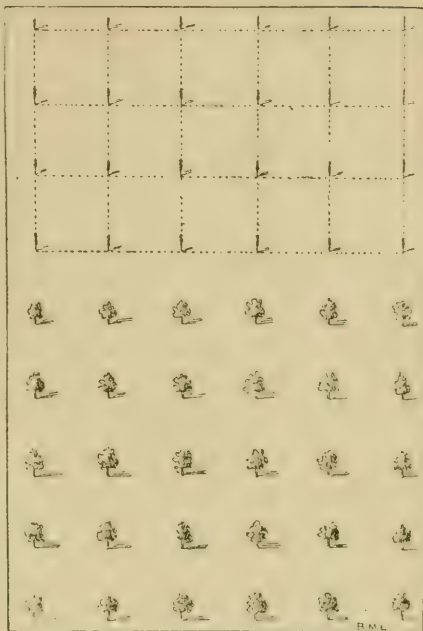 R M L